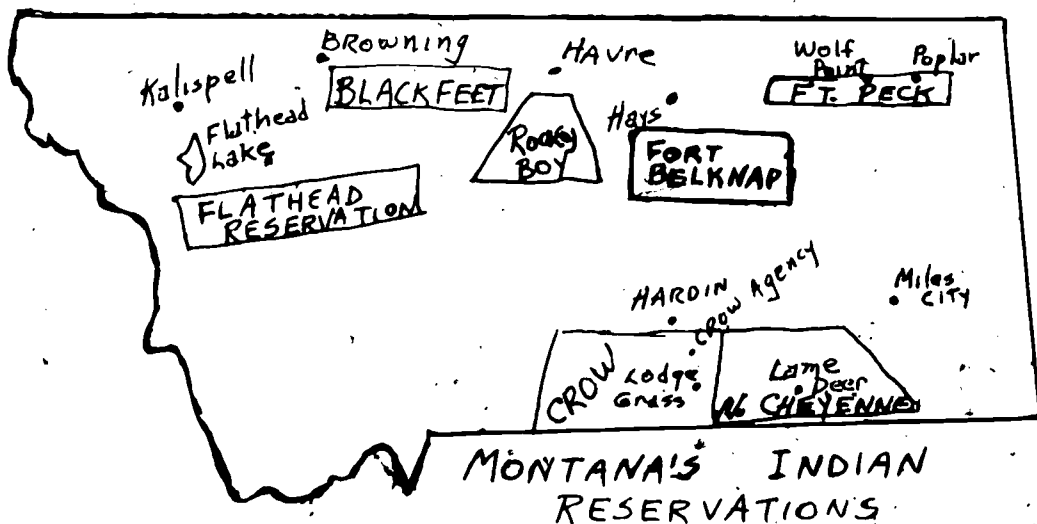 BROWNING
HAVRE
Wolf
Point
Poplar
Kalispell
BLACKFEET
FT. PECK
Flathead
Lake
Rocky
BOY
Hays
FORT
BELKNAP
FLATHEAD
RESERVATION
HARDIN
CROW Agency
Miles
CITY
CROW
Lodge
Grass
Lame
Deer
No CHEYENNE
MONTANA'S INDIAN
RESERVATIONS